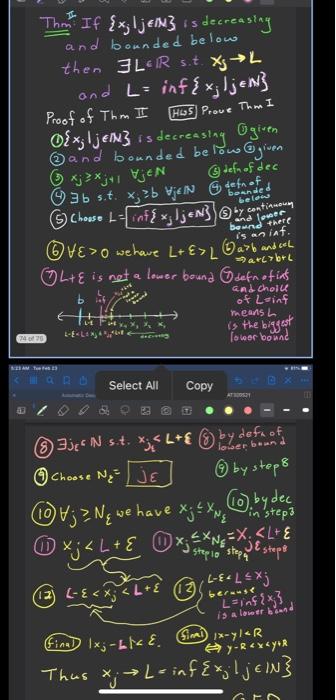 Thm: II If {xj | j∈ℕ} is decreasing
and bounded below
then ∃L∈ℝ s.t. xj→L
and L = inf{xj | j∈ℕ}
Proof of Thm II HW5 Prove Thm I
① {xj | j∈ℕ} is decreasing ① given
② and bounded below ② given
③ xj ≥ xj+1 ∀j∈ℕ ③ defn of dec
④ ∃b s.t. xj ≥ b ∀j∈ℕ ④ defn of bounded below
⑤ Choose L = inf{xj | j∈ℕ} ⑤ by continuum and lower bound there is an inf.
⑥ ∀ε>0 we have L+ε>L ⑥ a>b and c≤L ⇒ a+c>b+L
⑦ L+ε is not a lower bound ⑦ defn of inf and choice of L=inf means L is the biggest lower bound
b L inf
L-ε<L≤xj decreasing
74 of 75
5:23 AM Tue Feb 23
Select All Copy
AT300521
⑧ ∃jε∈ℕ s.t. xjε < L+ε ⑧ by defn of lower bound
⑨ Choose Nε = jε ⑨ by step 8
⑩ ∀j ≥ Nε we have xj ≤ xNε ⑩ by dec in step 3
⑪ xj < L+ε ⑪ xj ≤ xNε = xjε < L+ε
step 10 step 9 step 8
⑫ L-ε < xj < L+ε ⑫ L-ε<L≤xj because L=inf{xj} is a lower bound
final |xj-L|<ε. final |x-y|<R ⇔ y-R<x<y+R
Thus xj → L = inf{xj | j∈ℕ}
QED